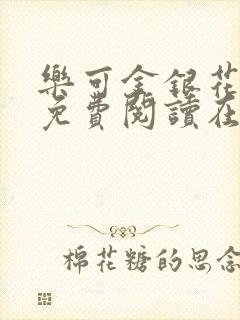 樂可金銀花
免費閱讀在
棉花糖的思念